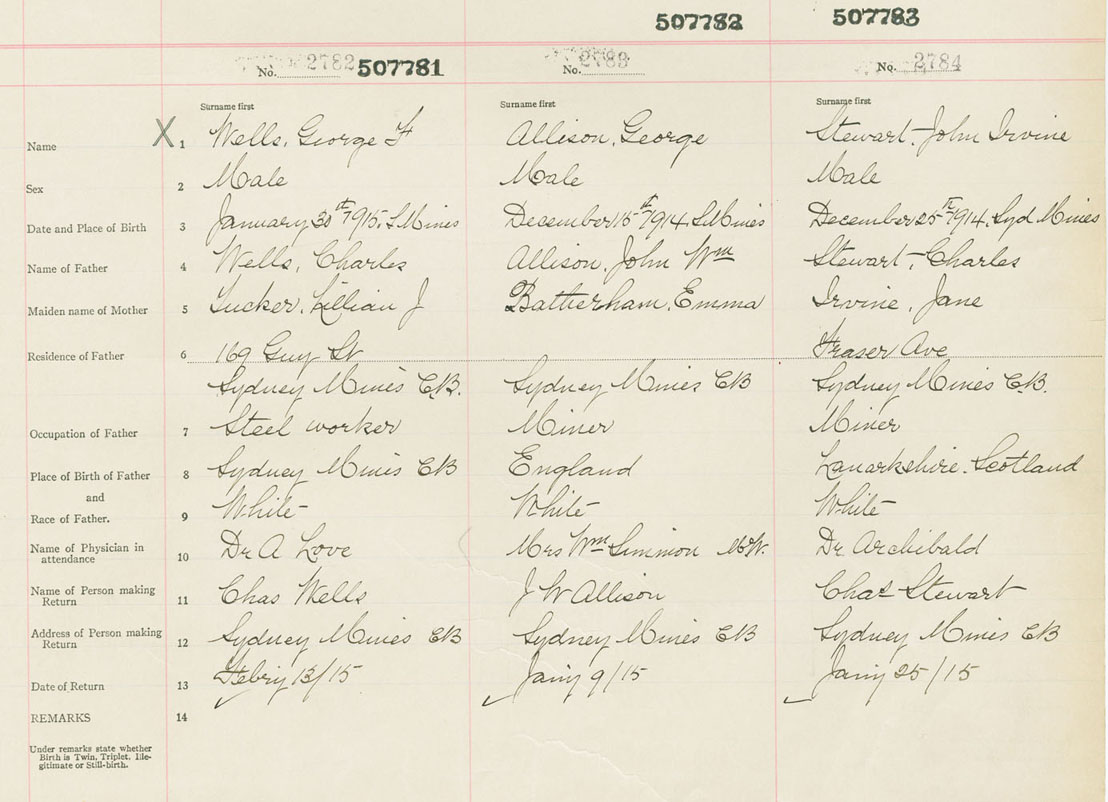 507782 507783
No. 2782 507781 No. 2783 No. 2784
Surname first Surname first Surname first
Name X 1 Wells, George F Allison, George Stewart, John Irvine
Sex 2 Male Male Male
Date and Place of Birth 3 January 30th 1915. S. Mines December 15th 1914. S. Mines December 25th 1914. Syd Mines
Name of Father 4 Wells, Charles Allison, John Wm Stewart, Charles
Maiden name of Mother 5 Tucker, Lillian J Batherham, Emma Irvine, Jane
Residence of Father 6 169 Guy St Fraser Ave
Sydney Mines CB. Sydney Mines CB Sydney Mines C.B.
Occupation of Father 7 Steel worker Miner Miner
Place of Birth of Father 8 Sydney Mines CB England Lanarkshire. Scotland
and
Race of Father. 9 White White White
Name of Physician in
attendance 10 Dr A Love Mrs Wm Simmon Dr. Archibald
Name of Person making
Return 11 Chas Wells J W Allison Chas Stewart
Address of Person making
Return 12 Sydney Mines CB Sydney Mines CB Sydney Mines CB
Date of Return 13 Febry 13/15 Jany 9/15 Jany 25/15
REMARKS 14
Under remarks state whether
Birth is Twin, Triplet, Ille-
gitimate or Still-birth.